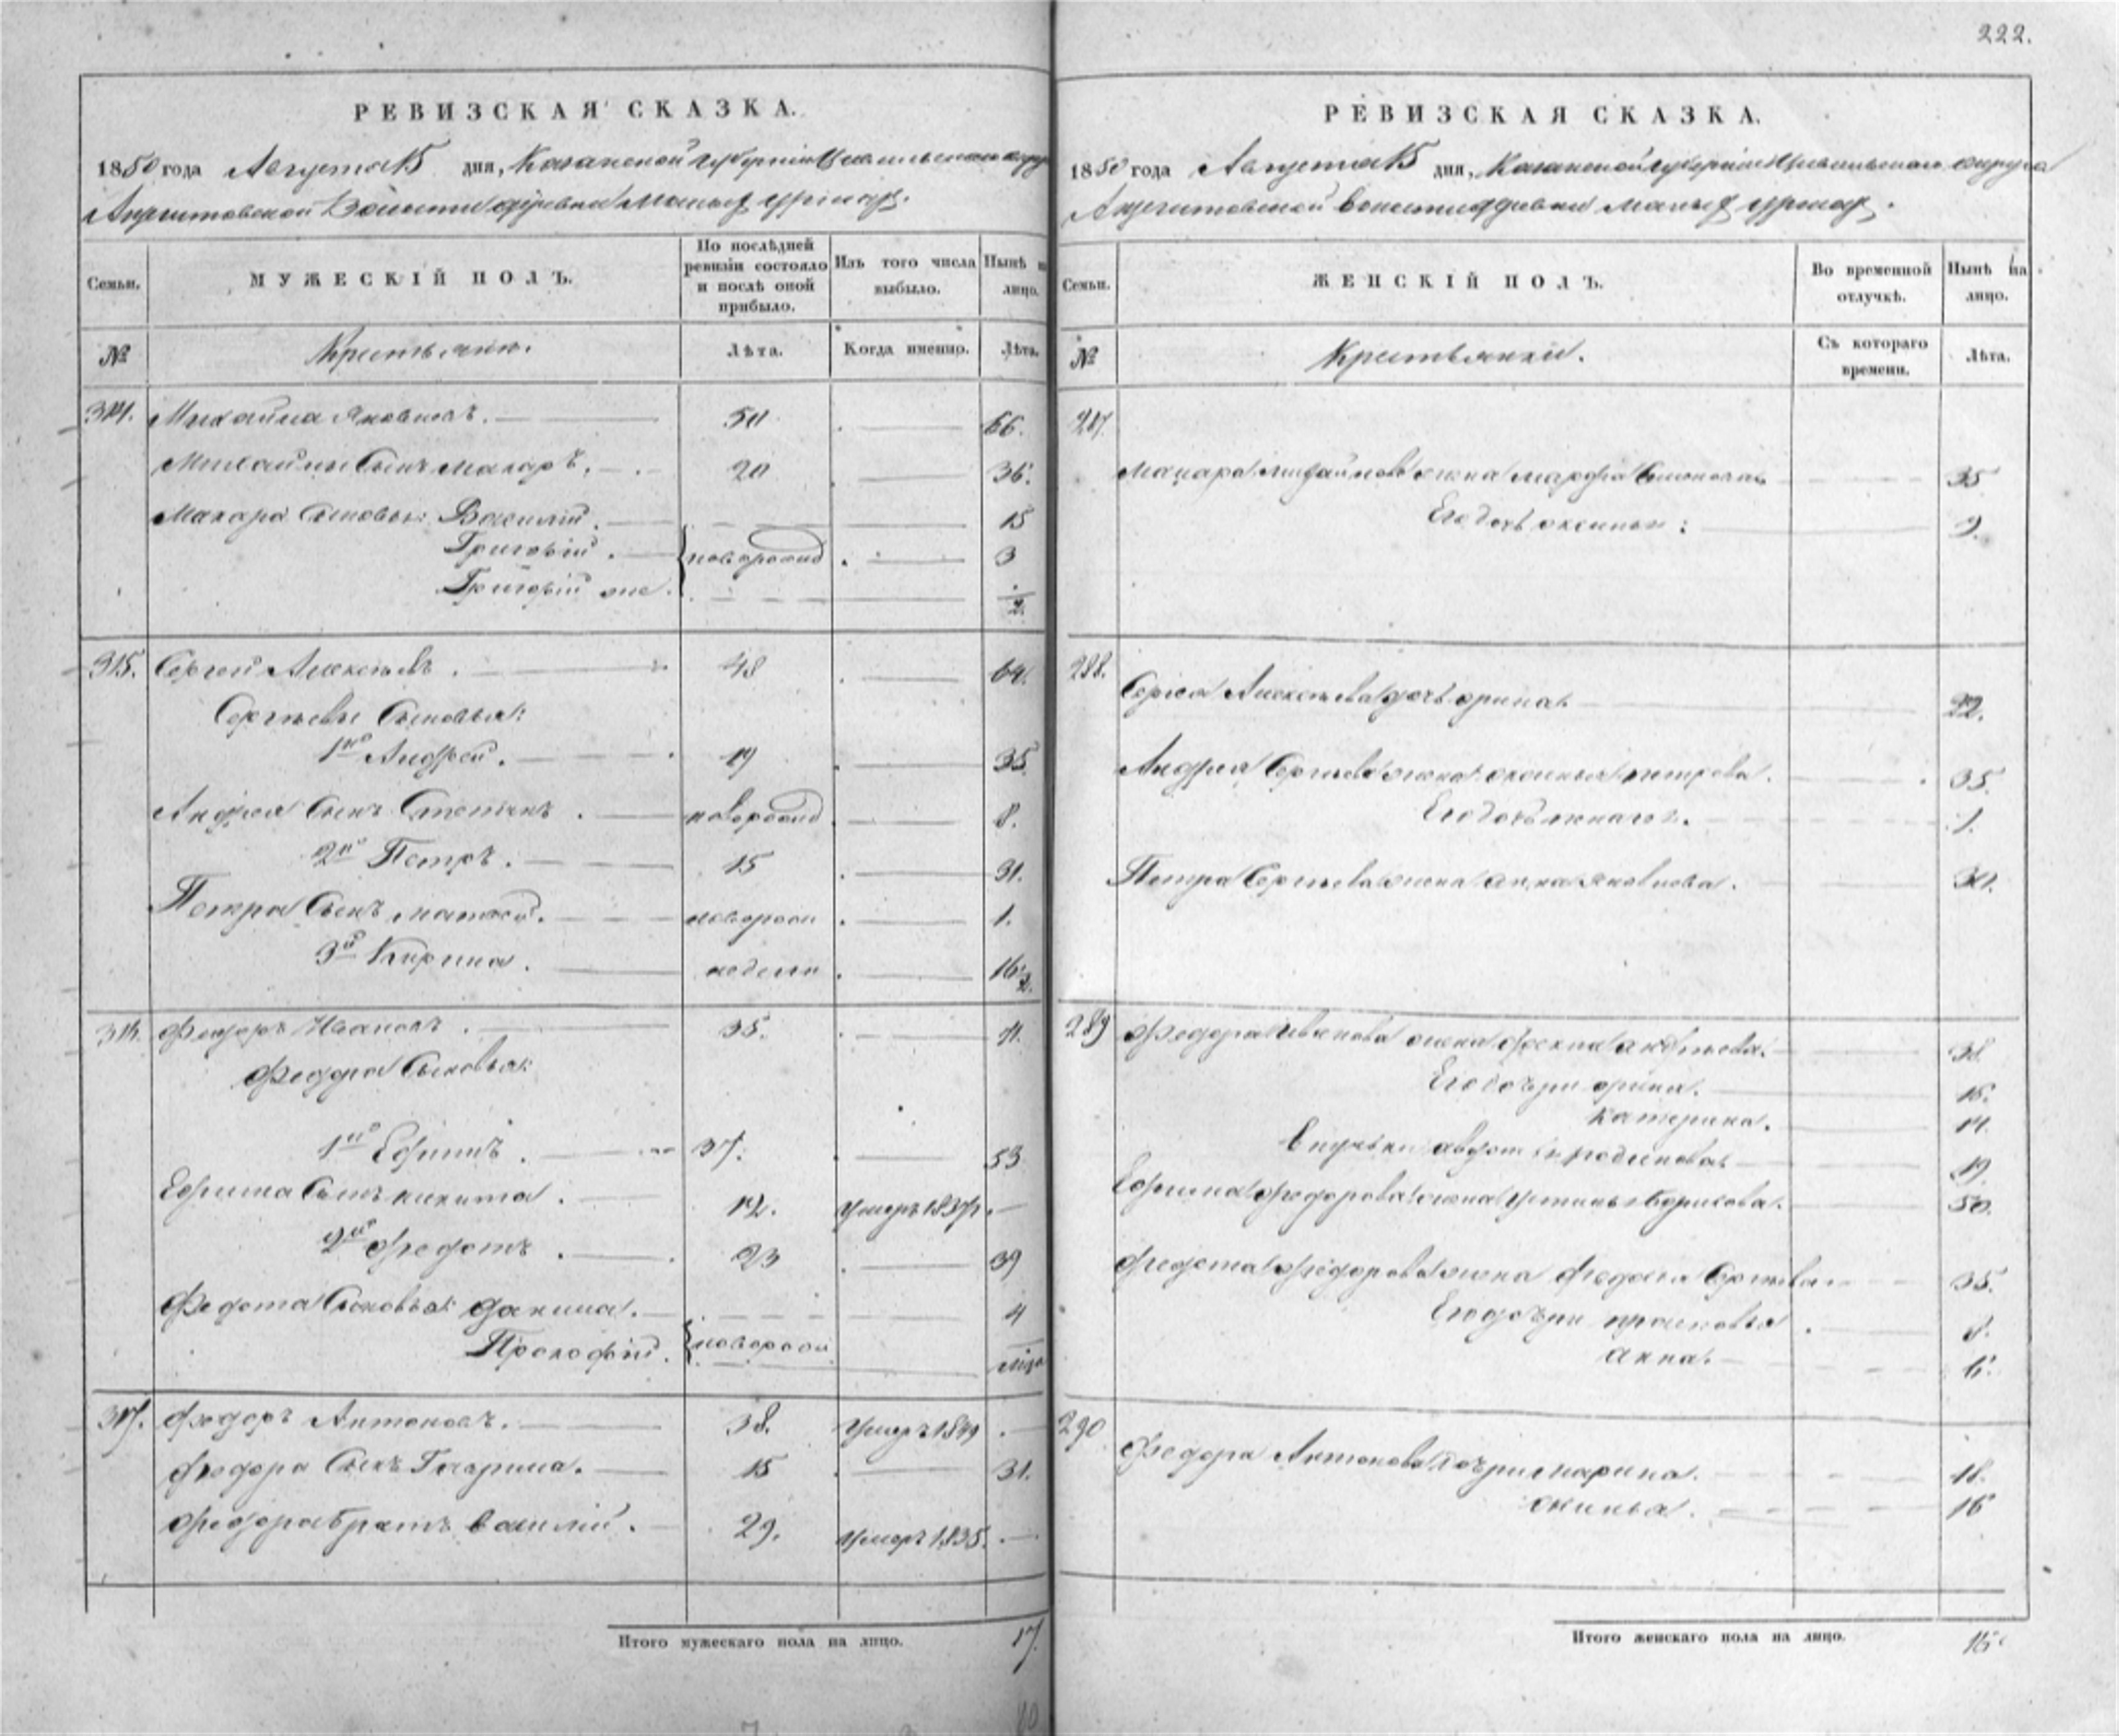 222.
РЕВИЗСКАЯ СКАЗКА.
1850 года Августа 15 дня, Казанской Губернии Цивильскаго округа
Волости деревни Малыхъ
Семьи. МУЖЕСКІЙ ПОЛЪ. По послѣдней ревизіи состояло и послѣ оной прибыло. Изъ того числа выбыло. Нынѣ на лицо.
№ Крестьяне. Лѣта. Когда именно. Лѣта.
314. Михайла Яковлевъ. 50 66.
Михайлы Сынъ Макаръ. 20 36.
Макара Сыновья: Василій. 15
Григорій. новорожд 3
Григорій же. 1/2.
315. Сергей Алексѣевъ. 48 64.
Сергѣевы Сыновья:
1й Андрей. 19 35.
Андрея Сынъ Степанъ. новорожд 8.
2й Петръ. 15 31.
Петра Сынъ матвей. новорожд 1.
3й Кирила. недели 16 1/2.
316. Федоръ Ивановъ. 35.
Федора Сыновья:
1й Ефимъ. 37. 53
Ефима Сынъ никита. 12. умеръ 1837.
2й Федотъ. 23 39
Федота Сыновья: данила. 4
Прокофій. новорожд
317. Федоръ Антоновъ. 38. Умеръ 1849
Федора Сынъ Гаврила. 15 31.
Федора братъ василій. 29. умеръ 1835.
Итого мужескаго пола на лицо. 17.
РЕВИЗСКАЯ СКАЗКА.
1850 года Августа 15 дня, Казанской губерніи Цивильскаго округа
волости деревни малыхъ
Семьи. ЖЕНСКІЙ ПОЛЪ. Во временной отлучкѣ. Нынѣ на лицо.
№ Крестьянки. Съ котораго времени. Лѣта.
287.
Макара Михайлова жена марфа 35
Его дочь оксинья: 9.
288.
Сергея Алексѣева дочь орина. 22.
Андрея Сергѣева жена оксинья петрова. 35.
Его дочь 1.
Петра Сергѣева жена анна яковлева. 30.
289 Федора Иванова жена 38.
Его дочери орина. 16.
катерина. 14.
19.
Ефима федорова жена устинья борисова. 50.
Федота федорова жена федосья Сергѣева 35.
Его дочери прасковья. 8.
анна. 6.
290
Федора Антонова дочери марина. 18.
16
Итого женскаго пола на лицо. 15